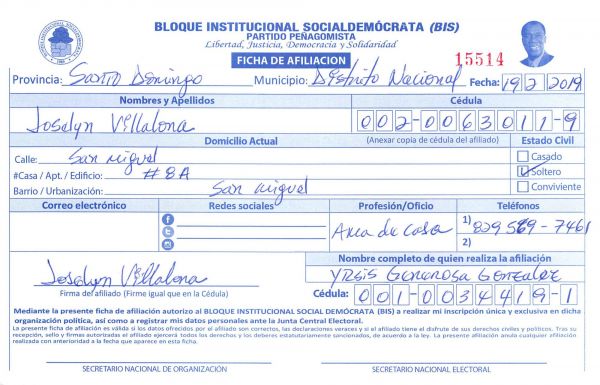 BLOQUE INSTITUCIONAL SOCIALDEMÓCRATA (BIS)
PARTIDO PEÑAGOMISTA
Libertad, Justicia, Democracia y Solidaridad
FICHA DE AFILIACION 15514
Provincia: Santo Domingo Municipio: Distrito Nacional Fecha: 19/2/2019
Nombres y Apellidos Cédula
Joselyn Villalona 002-0063011-9
Domicilio Actual (Anexar copia de cédula del afiliado) Estado Civil
Calle: San Miguel Casado
#Casa / Apt. / Edificio: #8A Soltero
Barrio / Urbanización: San Miguel Conviviente
Correo electrónico Redes sociales Profesión/Oficio Teléfonos
Ama de casa 1) 829 569-7461
2)
Nombre completo de quien realiza la afiliación
Joselyn Villalona Gonzalez
Firma del afiliado (Firme igual que en la Cédula) Cédula: 001-0034419-1
Mediante la presente ficha de afiliación autorizo al BLOQUE INSTITUCIONAL SOCIAL DEMÓCRATA (BIS) a realizar mi inscripción única y exclusiva en dicha
organización política, así como a registrar mis datos personales ante la Junta Central Electoral.
La presente ficha de afiliación es válida si los datos ofrecidos por el afiliado son correctos, las declaraciones veraces y si el afiliado tiene el disfrute de sus derechos civiles y políticos. Tras su
recepción, sello y firmas autorizadas el afiliado ejercerá todos los derechos y los deberes estatutariamente sancionados, de acuerdo a la ley. La presente afiliación anula cualquier afiliación
realizada con anterioridad a la fecha que aparece en esta ficha.
SECRETARIO NACIONAL DE ORGANIZACIÓN SECRETARIO NACIONAL ELECTORAL